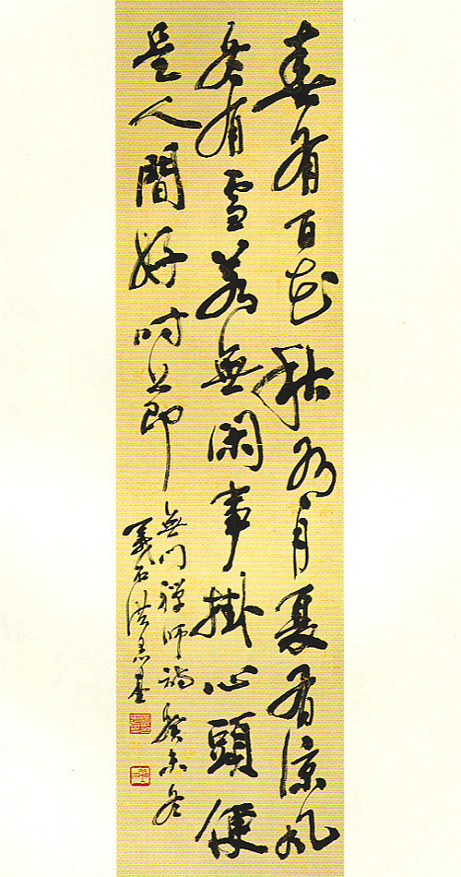 春有百花秋有月夏有涼風
冬有雪若無閑事掛心頭便
是人間好時節
無門禪師偈 癸未冬
義石洪惠基